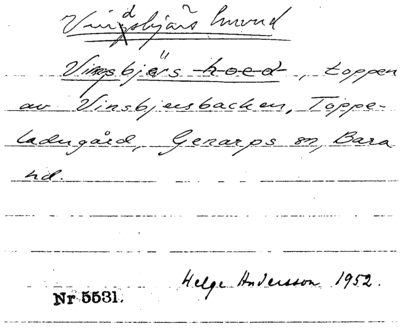 Vindsbjärs huvud
Vinsbjärs hoed, toppen
av Vinsbjersbacken, Toppe-
ladugård, Genarps sn, Bara
hd.
Helge Andersson 1952.
Nr 5531.